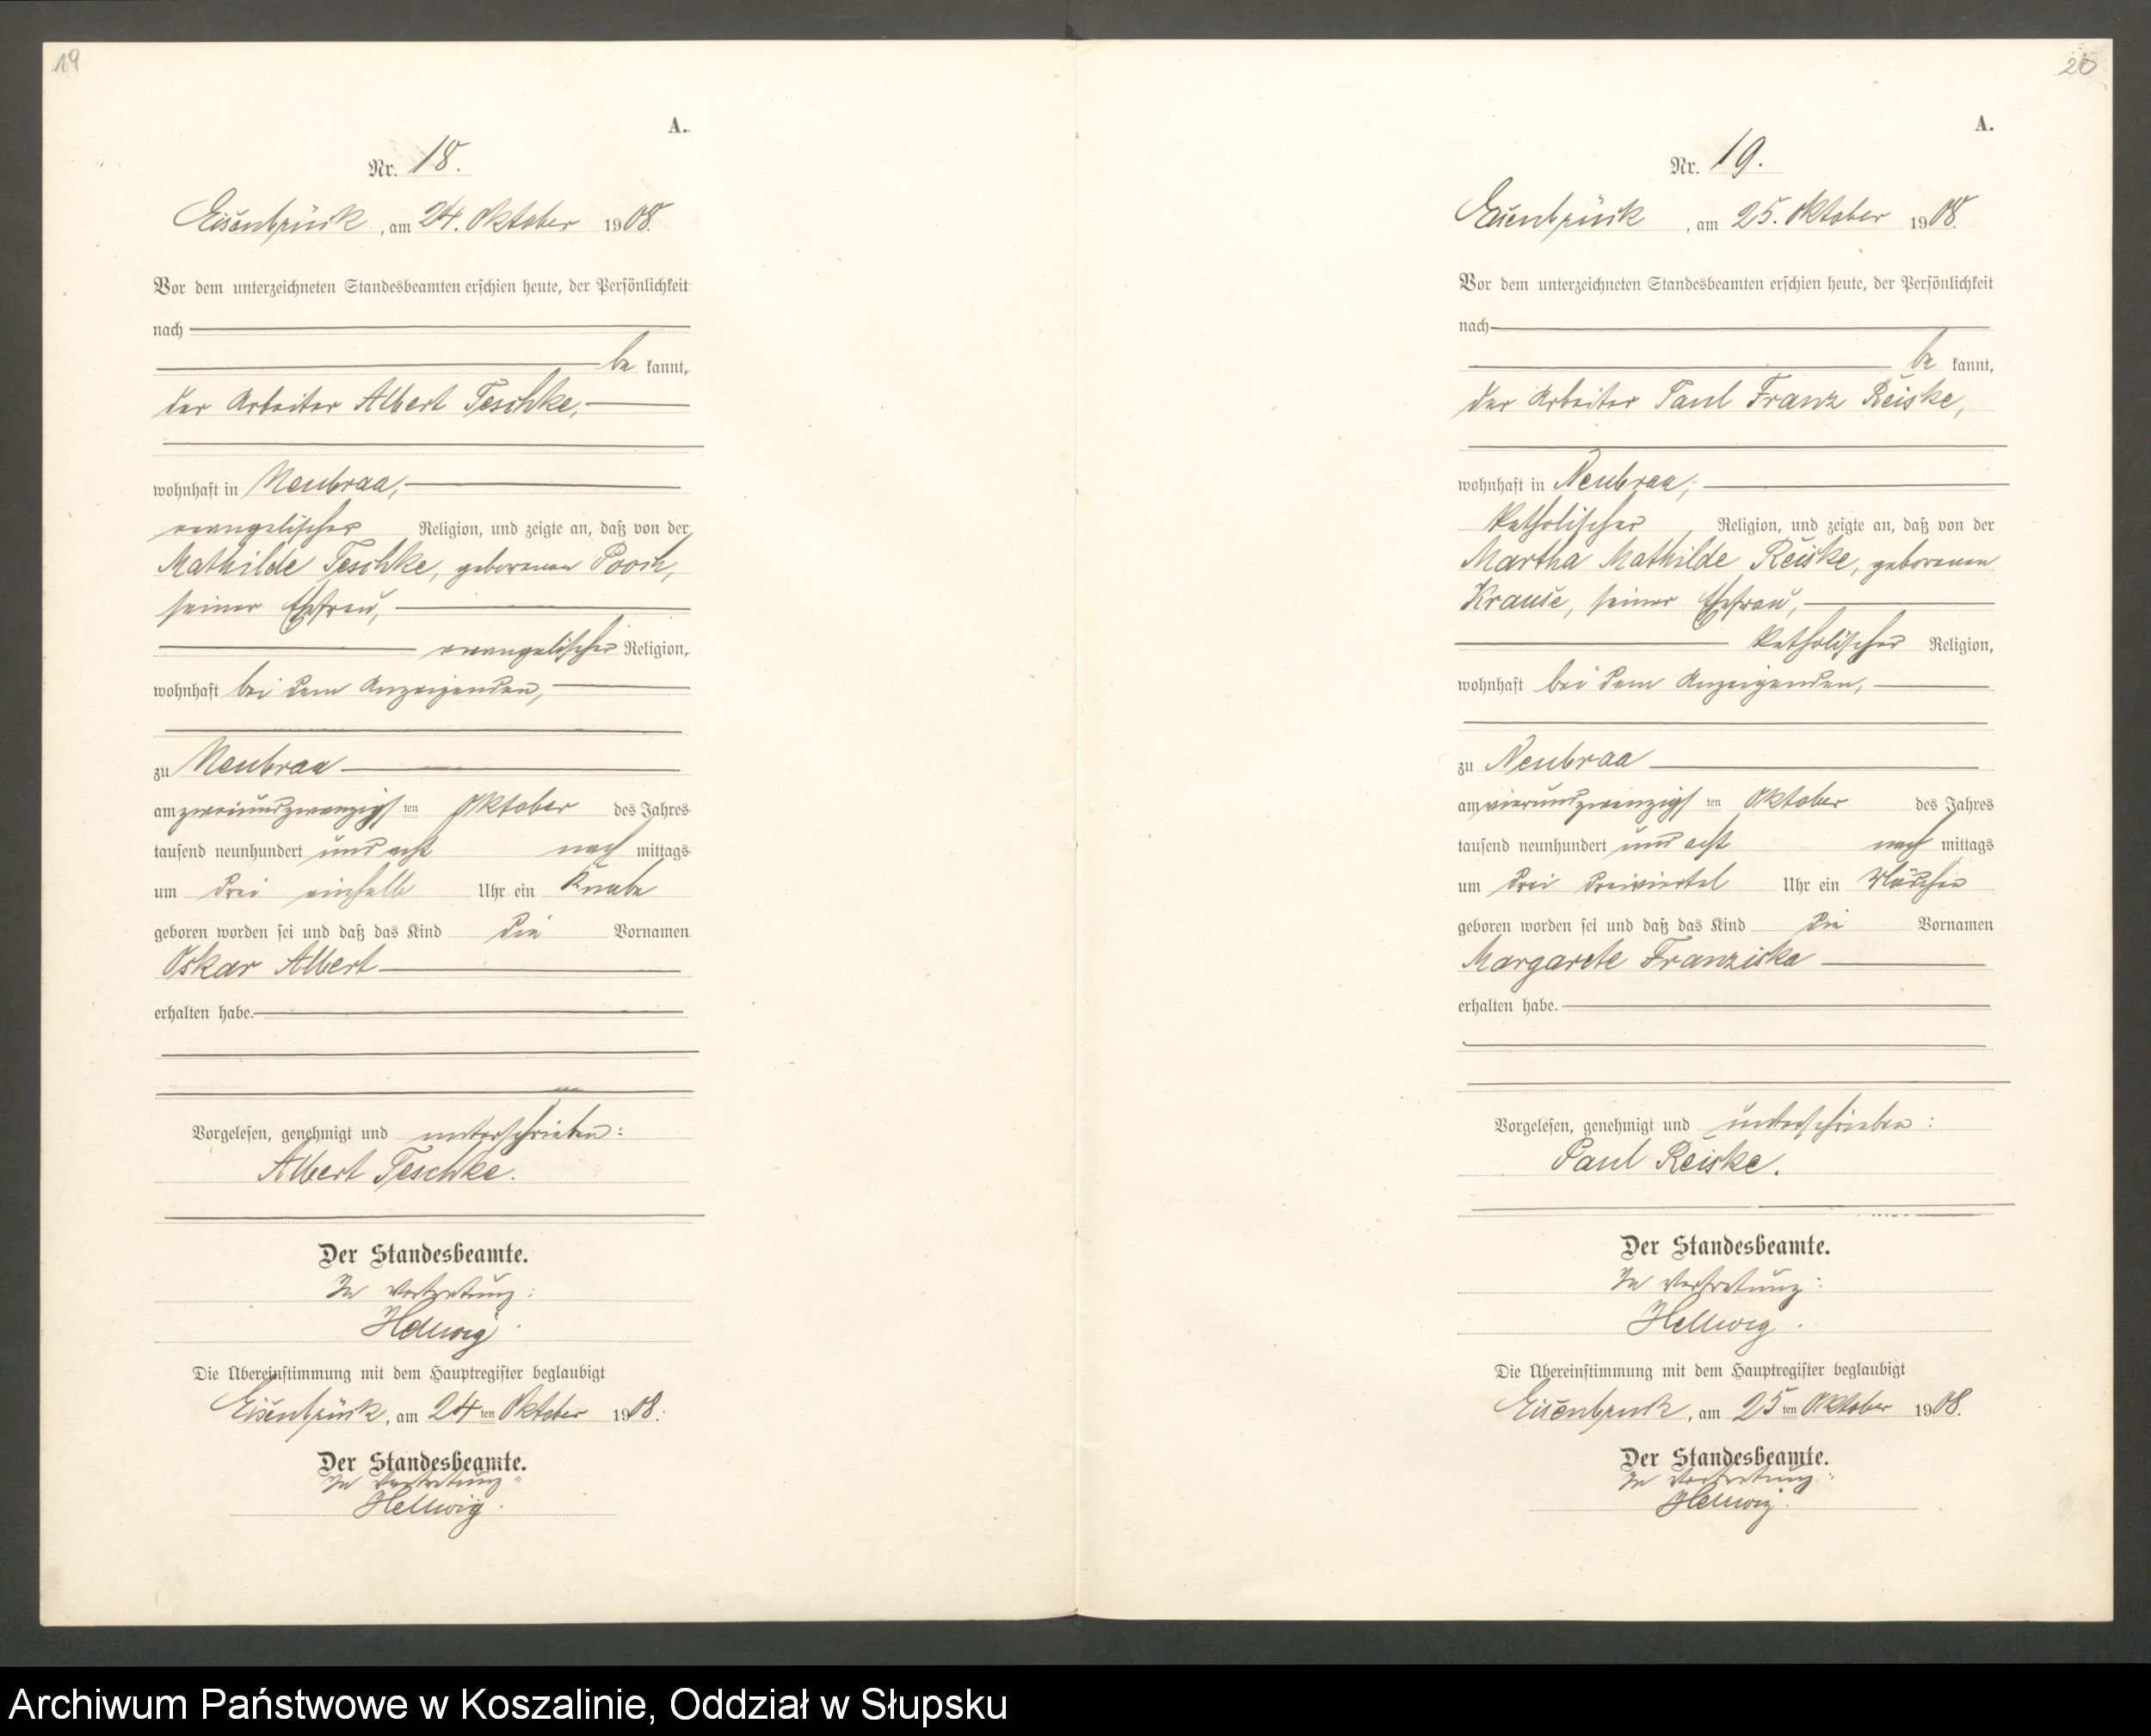 19
A.
Nr. 18.
Eisenbrück, am 24. Oktober 1908.
Vor dem unterzeichneten Standesbeamten erschien heute, der Persönlichkeit
nach
be kannt,
der Arbeiter Albert Teschke,
wohnhaft in Neubraa,
evangelischer Religion, und zeigte an, daß von der
Mathilde Teschke, geborenen Pooch,
seiner Ehefrau,
evangelischer Religion,
wohnhaft bei dem Anzeigenden,
zu Neubraa
am zweiundzwanzigsten Oktober des Jahres
tausend neunhundert und acht nach mittags
um drei einhalb Uhr ein Knabe
geboren worden sei und daß das Kind die Vornamen
Oskar Albert
erhalten habe.
Vorgelesen, genehmigt und unterschrieben:
Albert Teschke.
Der Standesbeamte.
In Vertretung:
Hellwig.
Die Übereinstimmung mit dem Hauptregister beglaubigt
Eisenbrück, am 24ten Oktober 1908.
Der Standesbeamte.
In Vertretung:
Hellwig.
20
A.
Nr. 19.
Eisenbrück, am 25. Oktober 1908.
Vor dem unterzeichneten Standesbeamten erschien heute, der Persönlichkeit
nach
be kannt,
der Arbeiter Paul Franz Reiske,
wohnhaft in Neubraa,
katholischer Religion, und zeigte an, daß von der
Martha Mathilde Reiske, geborenen
Krause, seiner Ehefrau,
katholischer Religion,
wohnhaft bei dem Anzeigenden,
zu Neubraa
am vierundzwanzigsten Oktober des Jahres
tausend neunhundert und acht nach mittags
um drei dreiviertel Uhr ein Mädchen
geboren worden sei und daß das Kind die Vornamen
Margarete Franziska
erhalten habe.
Vorgelesen, genehmigt und unterschrieben:
Paul Reiske.
Der Standesbeamte.
In Vertretung:
Hellwig.
Die Übereinstimmung mit dem Hauptregister beglaubigt
Eisenbrück, am 25ten Oktober 1908.
Der Standesbeamte.
In Vertretung:
Hellwig.
Archiwum Państwowe w Koszalinie, Oddział w Słupsku